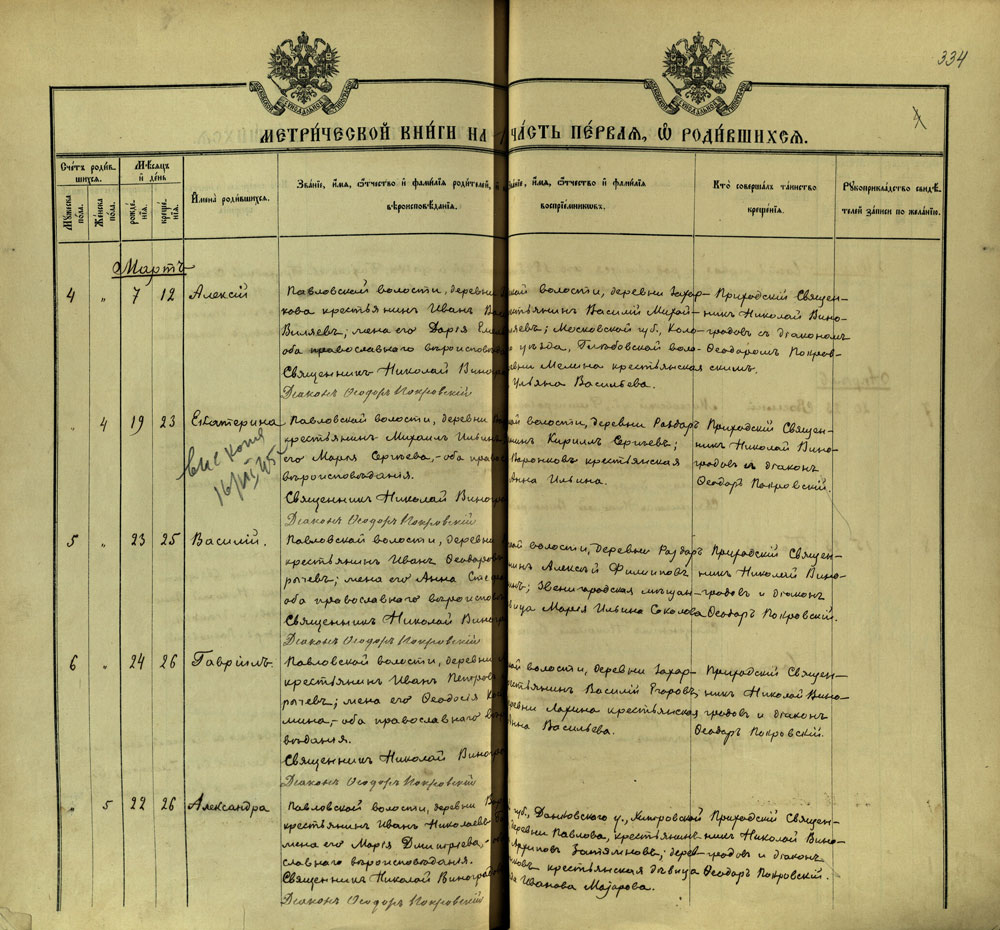 334
МЕТРИ́ЧЕСКОЙ КНИ́ГИ НА
ЧА́СТЬ ПЕ́РВАЯ, Ѡ҆ РОДИ́ВШИХСЯ.
Сче́тъ роди́в-
шихся.
Мѣ́сяцъ
и҆ де́нь
Му́жеска
по́ла.
Же́нска
по́ла.
рожде́-
нія.
креще́-
нія.
И҆мена̀ роди́вшихся.
Зва́ніе, и҆́мя, ѻ҆́тчество и҆ фами́лія роди́телей, и҆
вѣроисповѣ́данія.
Зва́ніе, и҆́мя, ѻ҆́тчество и҆ фами́лія
воспріе́мниковъ.
Кто̀ соверша́лъ та́инство
креще́нія.
Рукоприкла́дство свидѣ́-
телей за́писи по жела́нію.
Мартъ
4 " 7 12 Алексій
Павловской волости, деревни
кова крестьянин Иван
Виляев; жена его Дарія
оба православнаго вѣроисповѣд
Священникъ Николай Виногр
Діаконъ Ѳеодоръ Покровскій
ской волости, деревни Захар-
крестьянин Василій Михай-
ляев; Московской губ., Коло-
уѣзда, волос-
деревни Мелина крестьянская
Ульяна Васильева.
Приходскій Священ-
ник Николай Вино-
градов съ діаконом
Ѳеодором Покров-
ским.
" 4 19 23 Екатерина
вис копия
Павловской волости, деревни
крестьянинъ Михаил Ильинъ
его Марія Сергѣева, - оба прав
вѣроисповѣданія.
Священникъ Николай Виногр
Діаконъ Ѳеодоръ Покровскій
ской волости, деревни Раздар
нинъ Кирилъ Сергѣевъ;
Воронковъ крестьянская
Анна Ильина.
Приходскій Священ-
никъ Николай Вино-
градовъ и діаконъ
Ѳеодоръ Покровскій.
5 " 23 25 Василій.
Павловской волости, деревни
крестьянинъ Иван Ѳеодоров
рычевъ; жена его Анна
оба православнаго вѣроисповѣд
Священникъ Николай Виногр
Діаконъ Ѳеодоръ Покровскій
ской волости, деревни Раздар
нинъ Алексѣй Филиппов
Звенигородская мѣщан-
дѣвица Марія Ильина Соколова
Приходскій Священ-
никъ Николай Вино-
градовъ и діаконъ
Ѳеодоръ Покровскій.
6 " 24 26 Гавріилъ.
Павловской волости, деревни
крестьянинъ Иван Петров
рычевъ; жена его Ѳеодосія
мина, - оба православнаго вѣро
вѣданія.
Священникъ Николай Виногр
Діаконъ Ѳеодоръ Покровскій
ской волости, деревни Захар-
крестьянинъ Василій Егоровъ;
деревни Ларина крестьянская
Анна Васильева.
Приходскій Священ-
никъ Николай Вино-
градовъ и діаконъ
Ѳеодоръ Покровскій.
" 5 22 26 Александра
Павловской волости, деревни
крестьянинъ Иван Николаевъ
жена его Марія Дмитріева, -
славнаго вѣроисповѣданія.
Священникъ Николай Виноградов
Діаконъ Ѳеодоръ Покровскій
губ., Данковского у.,
деревни Павлова, крестьянинъ
Архипов; дерев-
крестьянская дѣвица
Иванова Мазарова.
Приходскій Священ-
никъ Николай Вино-
градовъ и діаконъ
Ѳеодоръ Покровскій.